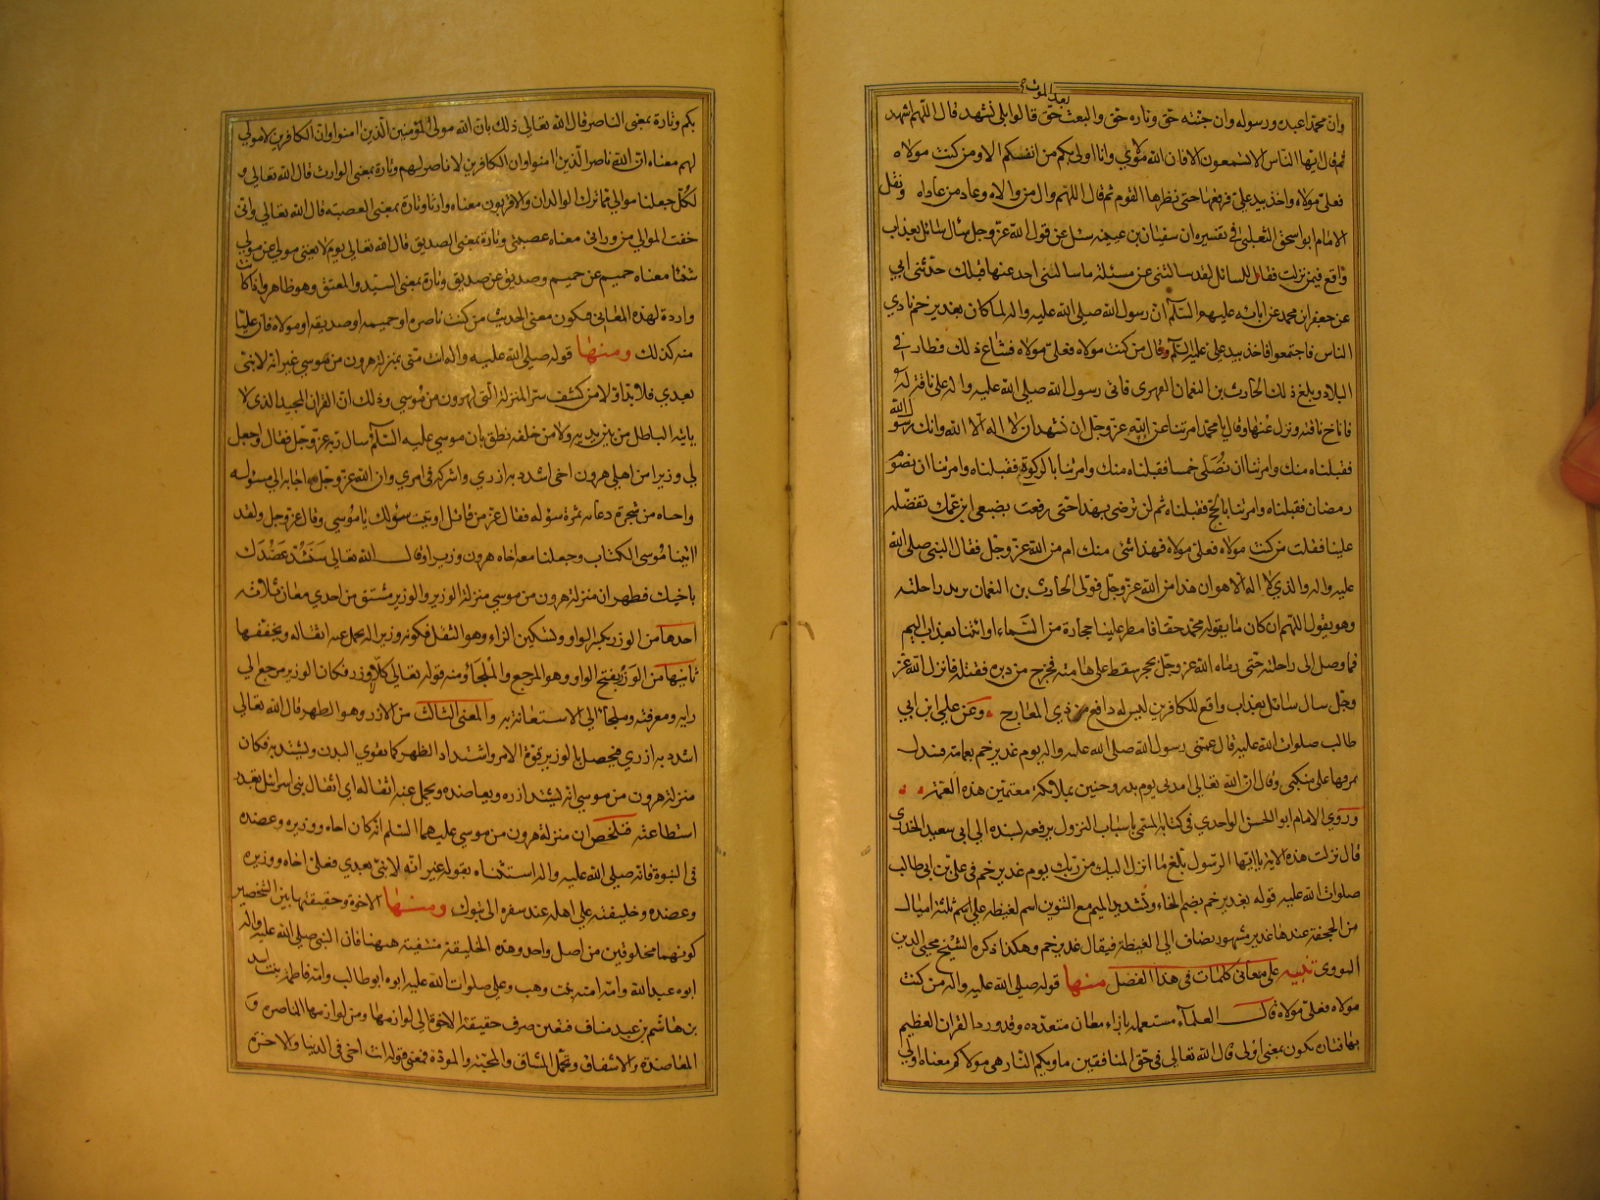 بعد الموت
وان محمدا عبده ورسوله وان جنته حق وناره حق والبعث حق قالوا بلى نشهد قال اللهم اشهد
ثم قال ايها الناس الا تسمعون الا فان الله مولاي وانا اولى بكم من انفسكم الا ومن كنت مولاه
فعلي مولاه واخذ بيد علي فرفعها حتى نظرها القوم ثم قال اللهم وال من والاه وعاد من عاداه ونقل
الامام ابو اسحق الثعلبي في تفسيره ان سفيان بن عيينه سئل عن قول الله عز وجل سأل سائل بعذاب
واقع فيمن نزلت فقال للسائل لقد سالتني عن مسئلة ما سالني احد عنها قبلك حدثني ابي
عن جعفر ابن محمد عن ابائه عليهم السلام ان رسول الله صلى الله عليه واله لما كان بغدير خم نادى
الناس فاجتمعوا فاخذ بيد علي عليه السلام وقال من كنت مولاه فعلي مولاه فشاع ذلك فطار في
البلاد وبلغ ذلك الحارث بن النعمان الفهرى فاتى رسول الله صلى الله عليه واله على ناقة له
فاناخ ناقته ونزل عنها وقال يا محمد امرتنا عن الله عز وجل ان نشهد ان لا اله الا الله وانك رسول الله
فقبلناه منك وامرتنا ان نصلى خمسا فقبلناه منك وامرتنا بالزكوة فقبلناه وامرتنا ان نصوم
رمضان فقبلناه وامرتنا بالحج فقبلناه ثم لم ترضى بهذا حتى رفعت بضبعى ابن عمك تفضله
علينا فقلت من كنت مولاه فعلي مولاه فهذا شئ منك ام من الله عز وجل فقال النبي صلى الله
عليه واله والذي لا اله الا هو ان هذا من الله عز وجل فولى الحارث بن النعمان يريد راحلته
وهو يقول اللهم ان كان ما يقوله محمد حقا فامطر علينا حجارة من السماء او ائتنا بعذاب اليم
فما وصل الى راحلته حتى رماه الله عز وجل بحجر سقط على هامته فخرج من دبره فقتله فانزل الله عز
وجل سال سائل بعذاب واقع للكافرين ليس له دافع من ذي المعارج وعن علي ابن ابي
طالب صلوات الله عليه قال عممني رسول الله صلى الله عليه واله يوم غدير خم بعمامة فسدل
نمرقها على منكبي وقال ان الله تعالى امدني يوم بدر وحنين بملائكة معتمين هذه العمة
وروي الامام ابو الحسن الواحدي في كتابه المسمى باسباب النزول يرفعه بسنده الى ابي سعيد الخدرى
قال نزلت هذه الاية يا ايها الرسول بلغ ما انزل اليك من ربك يوم غدير خم في علي بن ابي طالب
صلوات الله عليه قوله بغدير خم بضم الخاء وتشديد الميم مع التنوين اسم لغيظة على ثلثة اميال
من الجحفة عندها غدير مشهور يضاف الى الغيظة فيقال غدير خم وهكذا ذكره الشيخ محيي الدين
النووى تنبيه على معاني كلمات في هذا الفصل منها قوله صلى الله عليه واله من كنت
مولاه فعلي مولاه قال العلماء مستعملة بازاء معان متعدده وقد ورد القران العظيم
بها فتارة تكون بمعنى اولى قال الله تعالى في حق المنافقين ماويكم النار هي مولاكم معناه اولى
بكم وتارة بمعنى الناصر قال الله تعالى ذلك بان الله مولى المؤمنين الذين امنوا وان الكافرين لا مولى
لهم معناه ان الله ناصر الذين امنوا وان الكافرين لا ناصر لهم وتارة بمعنى الوارث قال الله تعالى و
لكل جعلنا موالي مما ترك الوالدان والاقربون معناه وارثا وتارة بمعنى العصبة قال الله تعالى واني
خفت الموالي من ورائي معناه عصبتي وتارة بمعنى الصديق قال الله تعالى يوم لا يغنى مولى عن مولى
شئا معناه حميم عن حميم وصديق عن صديق وتارة بمعنى السيد والمعتق وهو ظاهر واذا كانت
واردة لهذه المعاني فيكون معنى الحديث من كنت ناصره او حميمه او صديقه او مولاه فان عليا
منه كذلك ومنها قوله صلى الله عليه واله انت مني بمنزلة هرون من موسي غير انه لا نبى
بعدي فلا بد اولا من كشف ستر المنزلة التى لهرون من موسي وذلك ان القران المجيد الذى لا
ياتيه الباطل من بين يديه ولا من خلفه نطق بان موسي عليه السلام سال ربه عز وجل فقال واجعل
لي وزيرا من اهلي هرون اخى اشدد به ازري واشركه في امري وان الله عز وجل اجابه الى مسئوله
واجناه من شجرة دعائه ثمرة سؤله فقال عز من قائل اوتيت سؤلك يا موسي وقال عز وجل ولقد
اتينا موسى الكتاب وجعلنا معه اخاه هرون وزيرا وقال الله تعالى سنشد عضدك
باخيك فظهر ان منزلة هرون من موسي منزلة الوزير والوزير مشتق من احدي معان ثلاثة
احدها من الوزر بكسر الواو وتسكين الزاء وهو الثقل فكونه وزير اله يحمل عنه اثقاله ويخففها
ثانيها من الوزر بفتح الواو وهو المرجع والملجأ ومنه قوله تعالى كلا لا وزر فكان الوزير مرجع الى
رايه ومعرفته وملجأ الى الاستعانة به والمعنى الثالث من الازر وهو الظهر قال الله تعالى
اشدد به ازري فيحصل بالوزير قوة الامر واشتداد الظهر كما يقوي البدن ويشتد به فكان
منزلة هرون من موسي انه يشد ازره ويعاضده ويحمل عنه اثقاله اي اثقال بنى اسرائيل بقدر
استطاعته فتلخص ان منزلة هرون من موسي عليهما السلم انه كان اخاه ووزيره وعضده
في النبوة فانه صلى الله عليه واله استثناه بقوله غير انه لا نبي بعدي فعلي اخاه ووزيره
وعضده وخليفته علي اهله عند سفره الى تبوك ومنها الاخوة وحقيقتها بين الشخصين
كونهما مخلوقين من اصل واحد وهذه الحقيقة منتفية ههنا فان النبي صلى الله عليه واله
ابوه عبد الله وامه امنة بنت وهب وعلي صلوات الله عليه ابوه ابو طالب وامه فاطمة بنت اسد
بن هاشم بن عبد مناف فتعين صرف حقيقة الاخوة الى لوازمها ومن لوازمها المناصرة و
المعاضدة والاشفاق وتحمل المشاق والمحبة والمودة فمعنى قوله انت اخى في الدنيا والاخرة